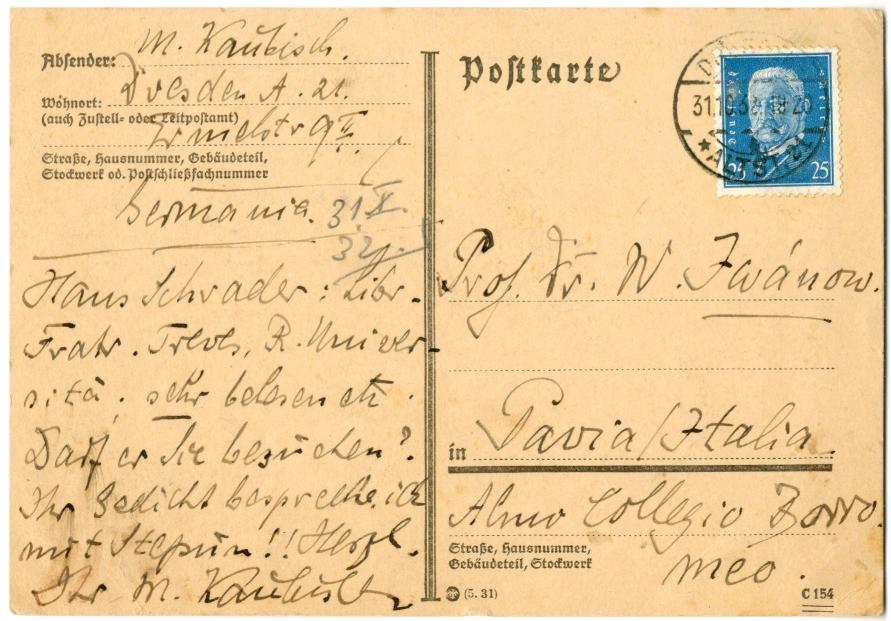 Absender: M. Kaubisch.
Wohnort: Dresden A. 21.
(auch Zustell- oder Leitpostamt)
Ermelstr 9 II.
Straße, Hausnummer, Gebäudeteil,
Stockwerk od. Postschließfachnummer
Germania. 31 X.
32.
Hans Schrader: Libr.
Fratr. Treves, R. Univer-
sità. sehr belesen etc.
Darf er Sie besuchen?
Ihr Gedicht bespreche ich
mit Stepun!! Herzl.
Ihr M. Kaubisch
Postkarte
Deutsches Reich
25 25
31.10.32 18-20
ALTST. 21
Prof. Dr. W. Iwánow.
in Pavia/Italia
Almo Collegio Borro.
meo.
Straße, Hausnummer,
Gebäudeteil, Stockwerk
(5. 31)
C 154